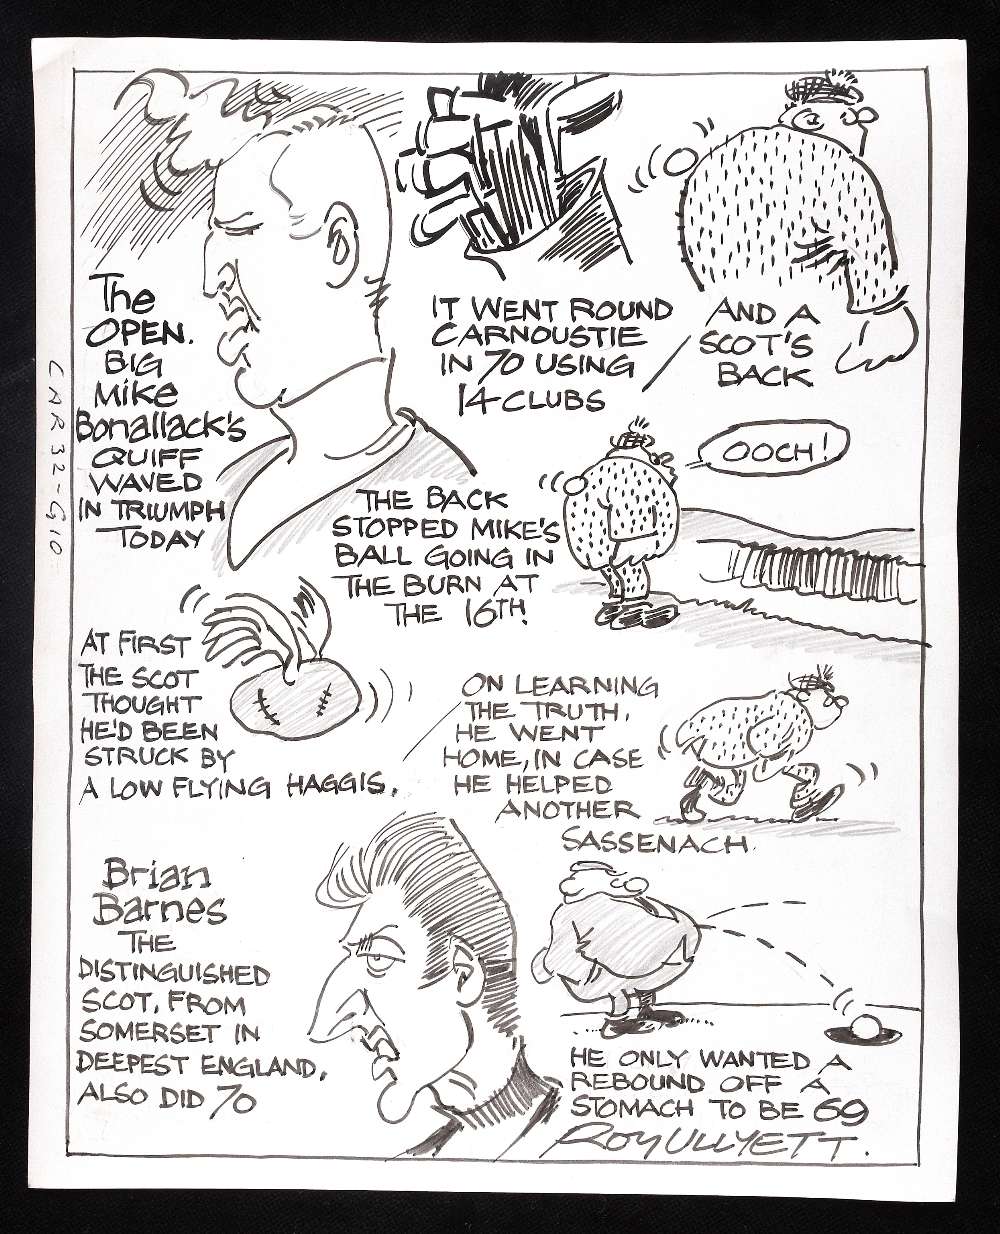 The
OPEN.
BIG
Mike
Bonallack's
QUIFF
WAVED
IN TRIUMPH
TODAY
IT WENT ROUND
CARNOUSTIE
IN 70 USING
14 CLUBS
AND A
SCOT'S
BACK
OOCH!
THE BACK
STOPPED MIKE'S
BALL GOING IN
THE BURN AT
THE 16TH!
AT FIRST
THE SCOT
THOUGHT
HE'D BEEN
STRUCK BY
A LOW FLYING HAGGIS.
ON LEARNING
THE TRUTH,
HE WENT
HOME, IN CASE
HE HELPED
ANOTHER
SASSENACH.
Brian
Barnes
THE
DISTINGUISHED
SCOT, FROM
SOMERSET IN
DEEPEST ENGLAND,
ALSO DID 70
HE ONLY WANTED A
REBOUND OFF A
STOMACH TO BE 69
ROY ULLYETT.
CAR 32-G10